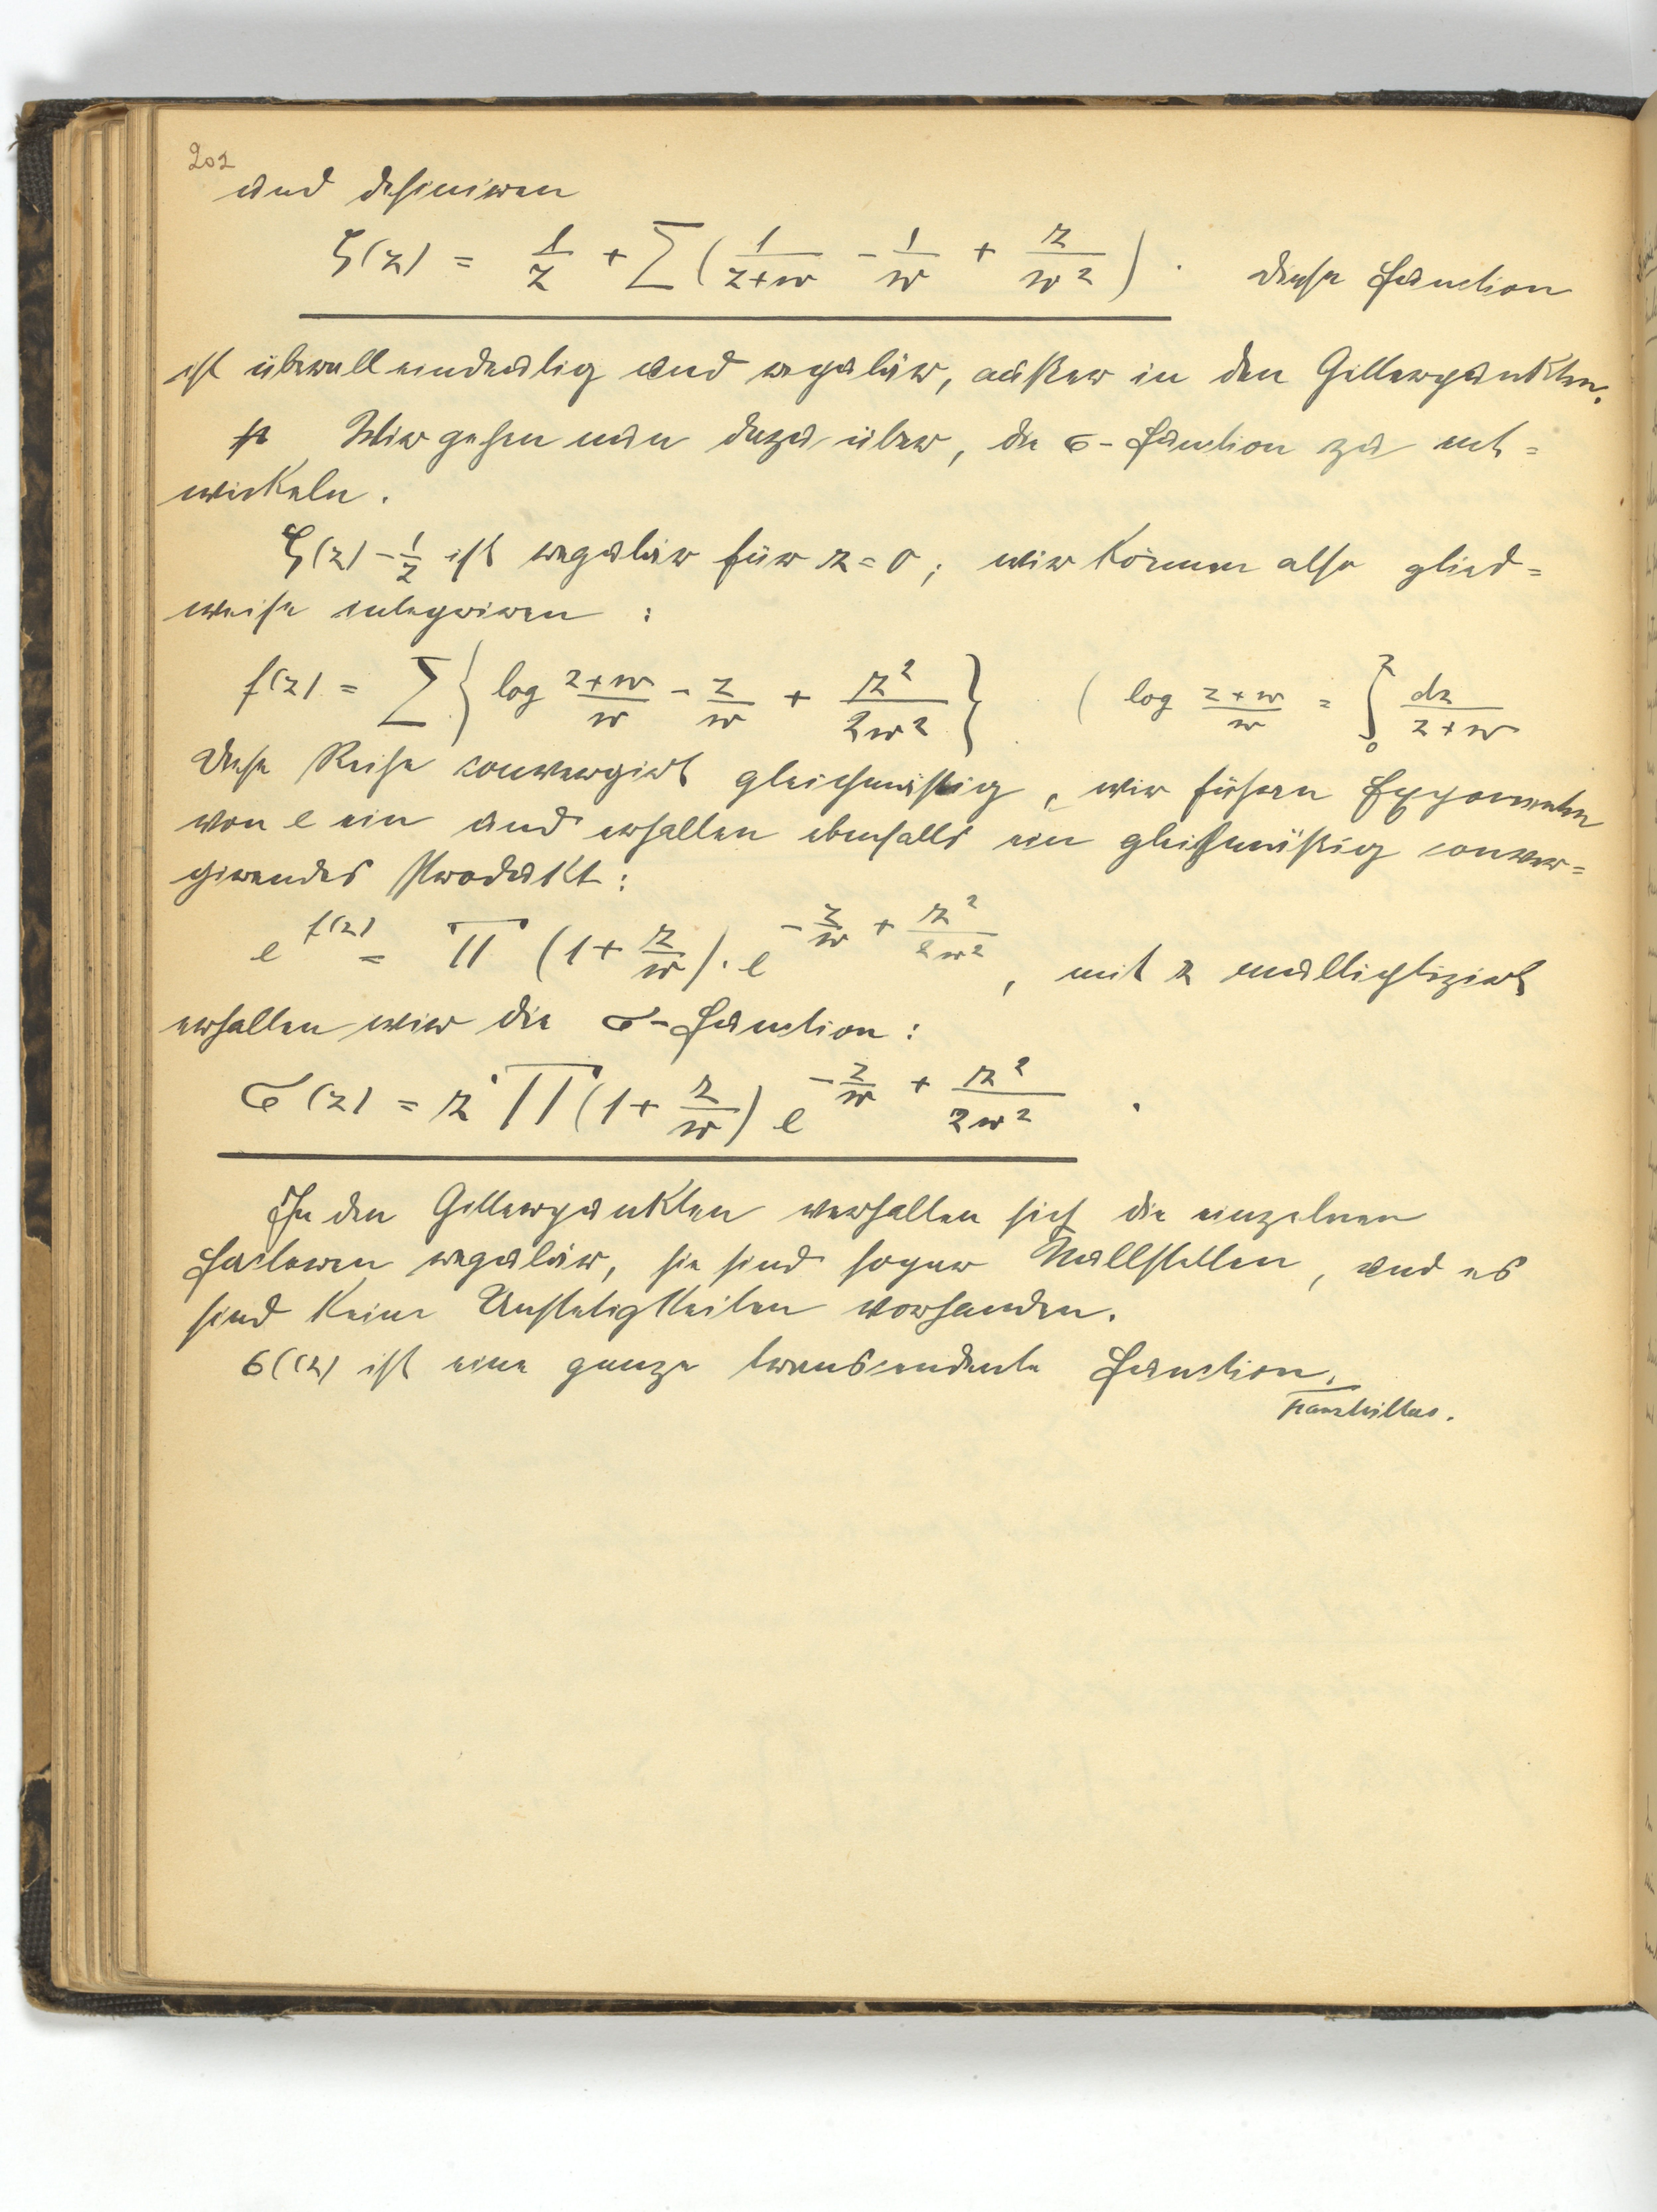 202
und definiren
ζ(z) = 1/z + Σ(1/(z+w) - 1/w + z/w²). Diese Function
ist überall eindeutig und regulär, außer in den Gitterpunkten.
Wir gehen nun dazu über, die σ-Function zu ent=
wickeln.
ζ(z) - 1/z ist regulär für z=0; wir können also glied=
weise integriren :
f(z) = Σ{ log (z+w)/w - z/w + z²/2w² } ( log (z+w)/w = ∫₀ᶻ dz/(z+w)
Diese Reihe convergirt gleichmäßig, wir führen Exponenten
von e ein und erhalten ebenfalls ein gleichmäßig conver=
girendes Produkt:
e^f(z) = Π (1+ z/w) · e^(-z/w + z²/2w²), mit z multiplizirt
erhalten wir die σ-Function:
σ(z) = z · Π(1+ z/w) e^(-z/w + z²/2w²).
In den Gitterpunkten verhalten sich die einzelnen
Factoren regulär, sie sind sogar Nullstellen, und es
sind keine Unstetigkeiten vorhanden.
σ(z) ist eine ganze transcendente Function.